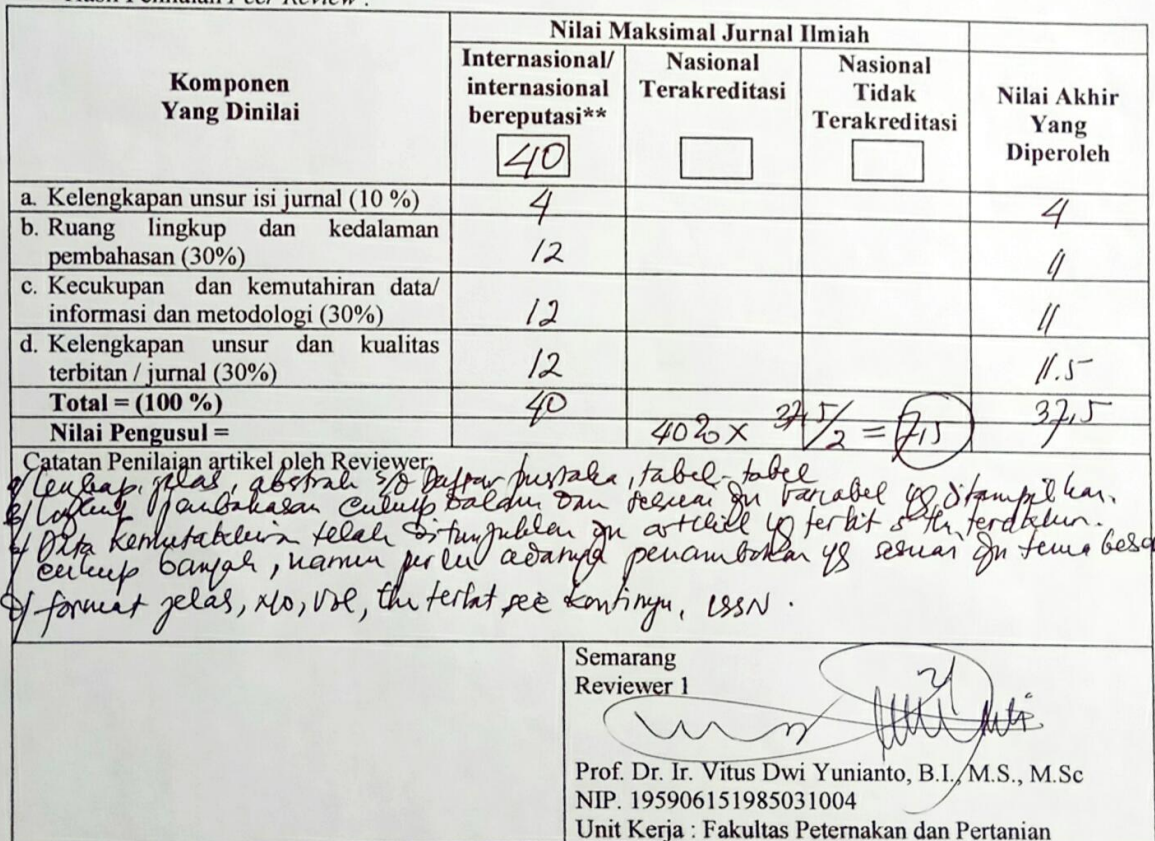 Hasil Penilaian Peer Review :
Komponen
Yang Dinilai
Nilai Maksimal Jurnal Ilmiah
Internasional/
internasional
bereputasi**
40
Nasional
Terakreditasi
Nasional
Tidak
Terakreditasi
Nilai Akhir
Yang
Diperoleh
a. Kelengkapan unsur isi jurnal (10 %) 4 4
b. Ruang lingkup dan kedalaman
pembahasan (30%) 12 11
c. Kecukupan dan kemutahiran data/
informasi dan metodologi (30%) 12 11
d. Kelengkapan unsur dan kualitas
terbitan / jurnal (30%) 12 11.5
Total = (100 %) 40 37,5
Nilai Pengusul = 40% x 37,5/2 = 7,5
Catatan Penilaian artikel oleh Reviewer:
a/ Lengkap, jelas, abstrak s/d Daftar pustaka, tabel-tabel
b/ pembahasan cukup dalam dan sesuai dgn variabel yg ditampilkan.
c/ Data kemutakhiran telah ditunjukkan dgn artikel yg terbit 5 th terakhir.
cukup banyak, namun perlu adanya penambahan yg sesuai dgn tema besar
d/ format jelas, No, Vol, thn terbit kontinyu, ISSN.
Semarang
Reviewer 1
Prof. Dr. Ir. Vitus Dwi Yunianto, B.I., M.S., M.Sc
NIP. 195906151985031004
Unit Kerja : Fakultas Peternakan dan Pertanian